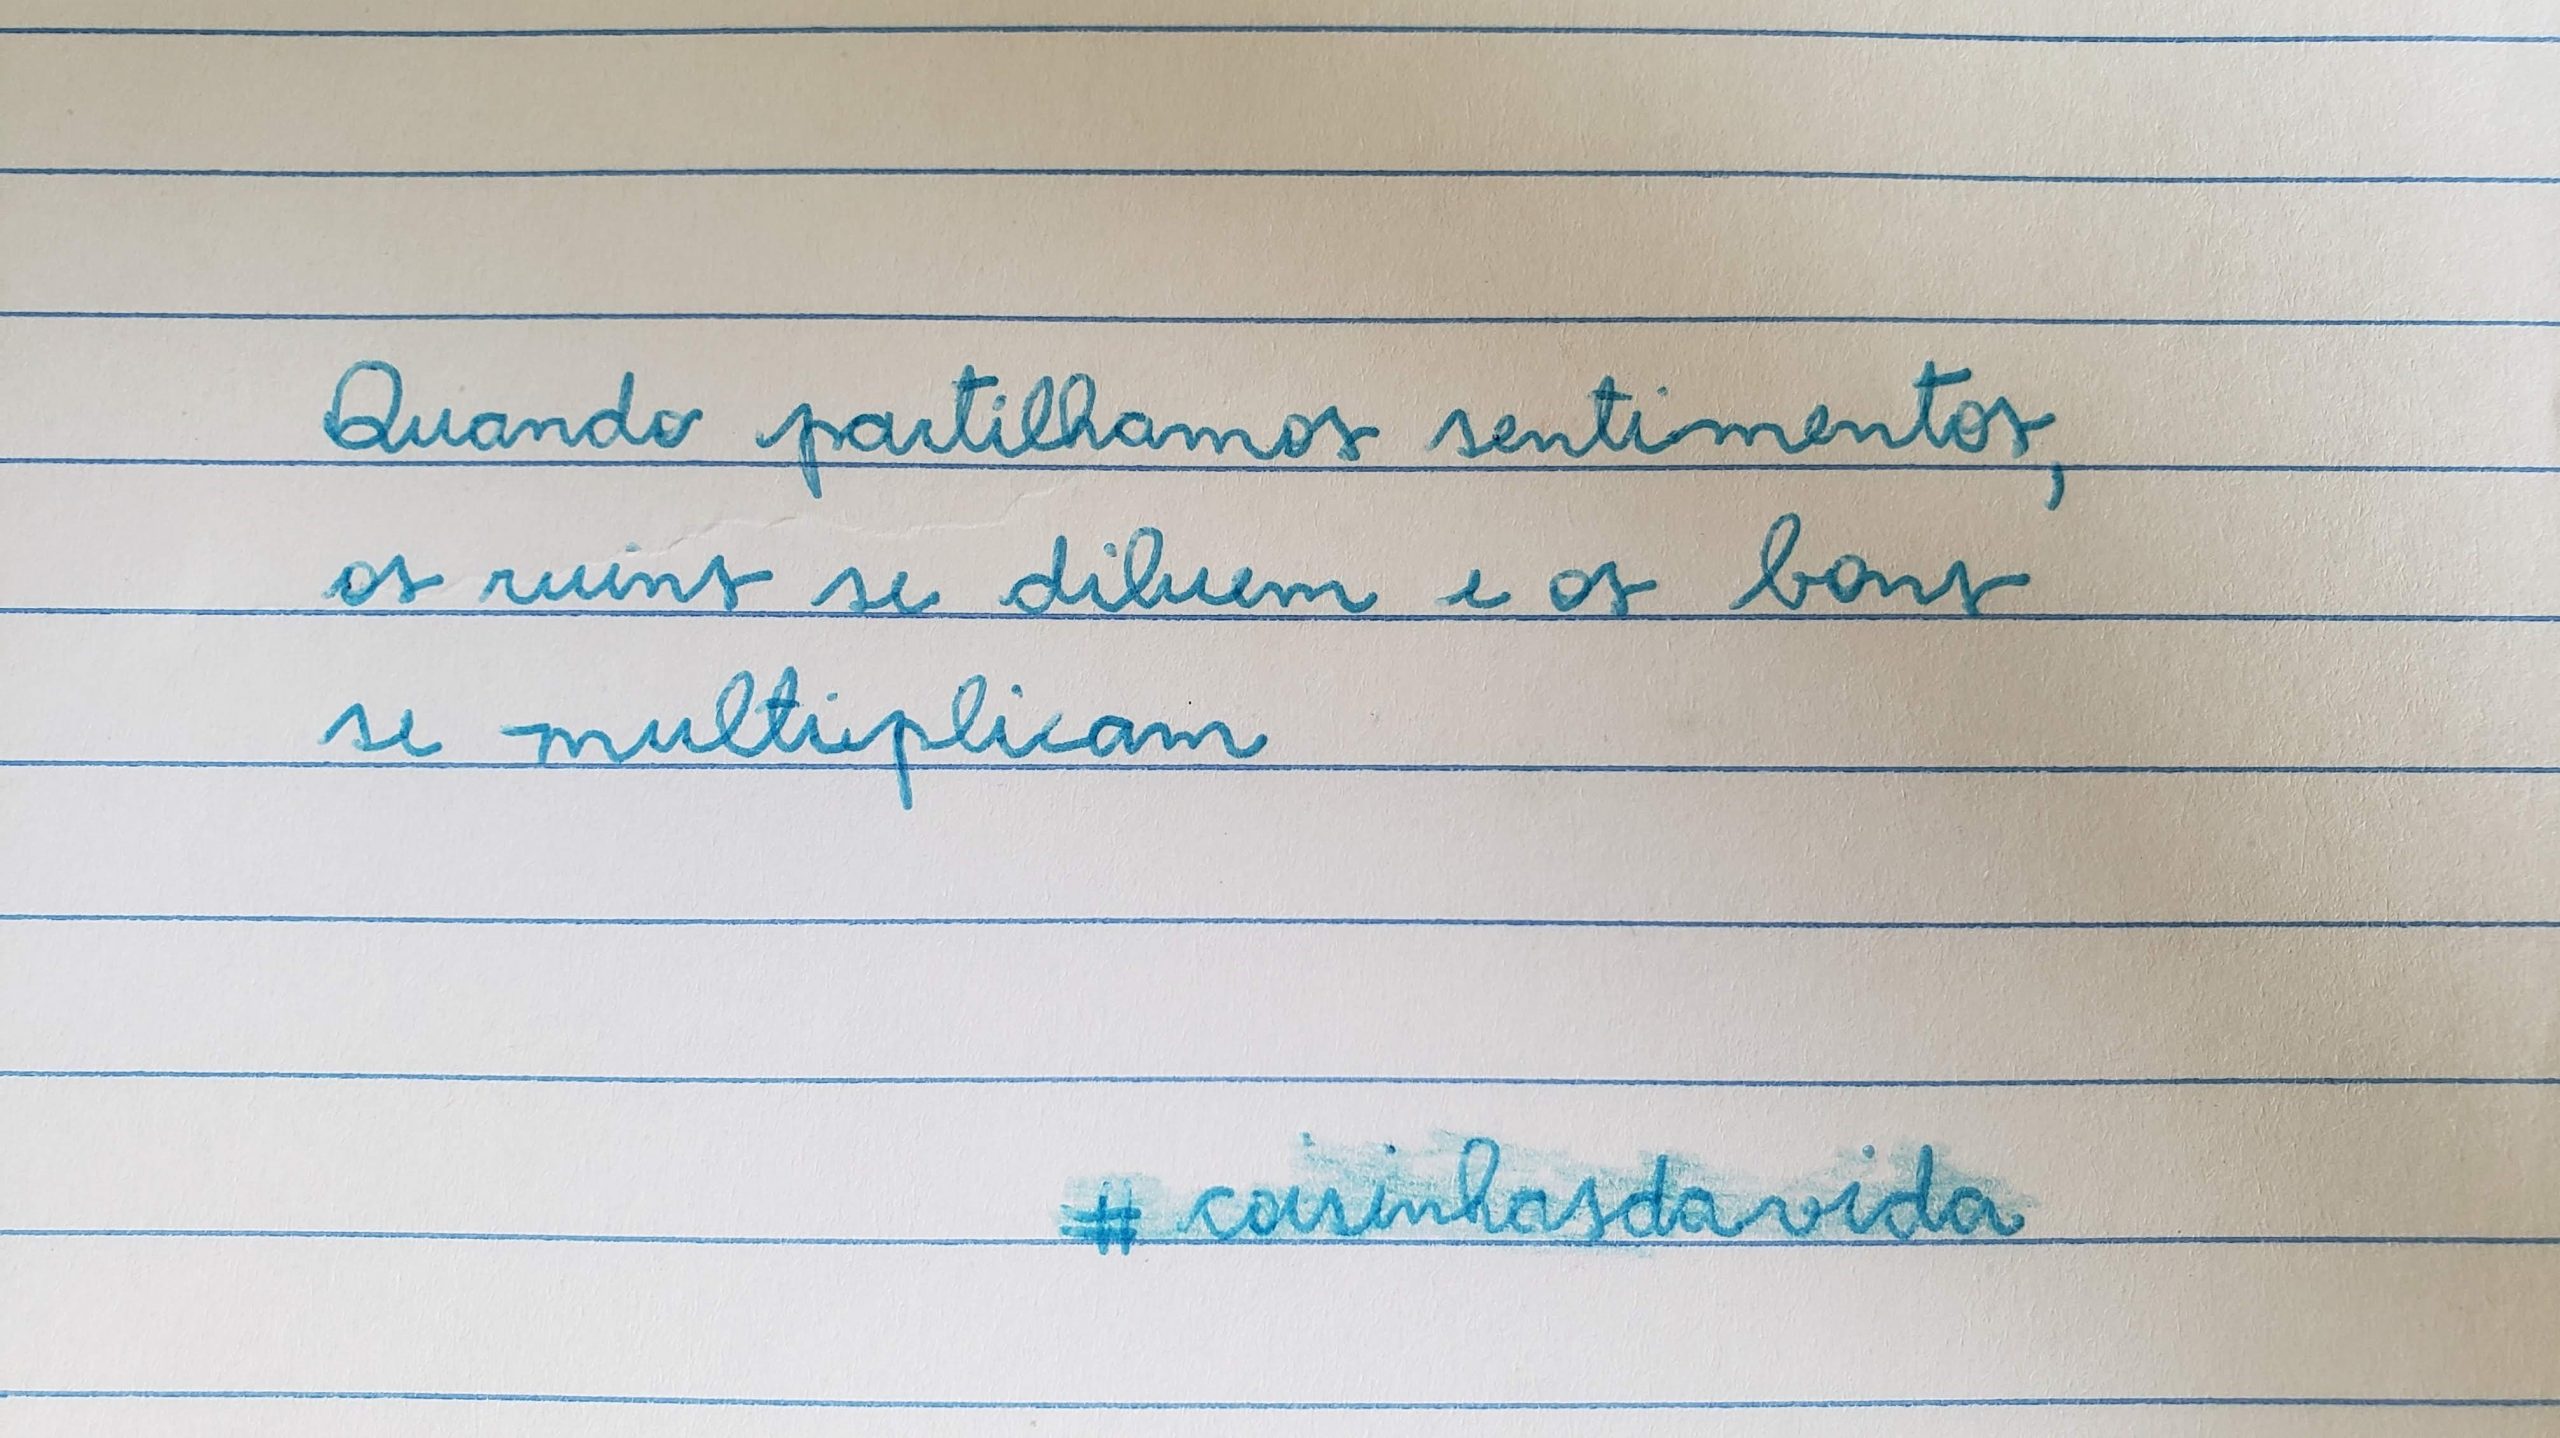 Quando partilhamos sentimentos,
os ruins se diluem e os bons
se multiplicam
#coisinhasdavida